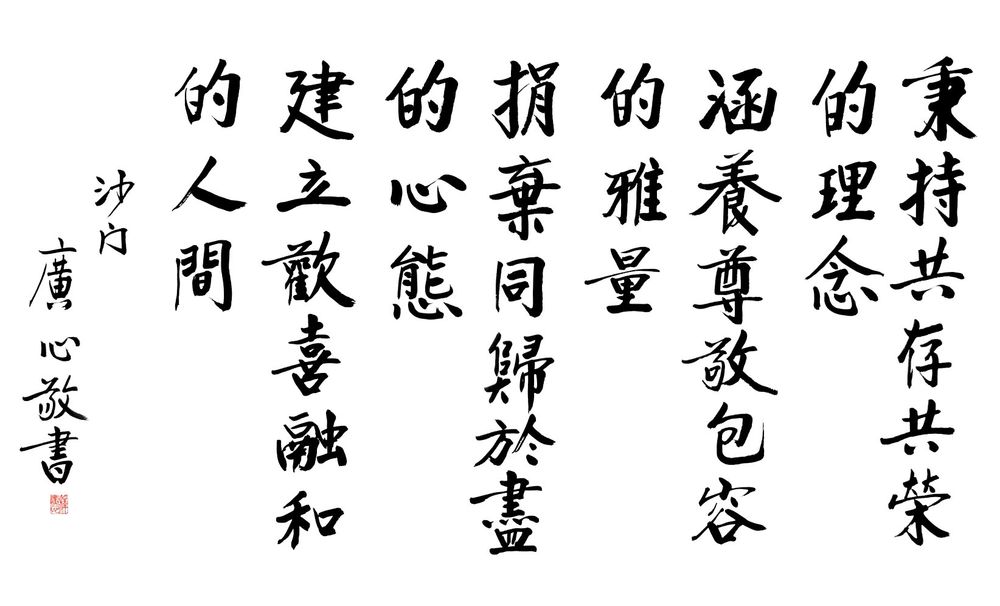 秉持共存共榮
的理念
涵養尊敬包容
的雅量
捐棄同歸於盡
的心態
建立歡喜融和
的人間
沙门
廣心敬書